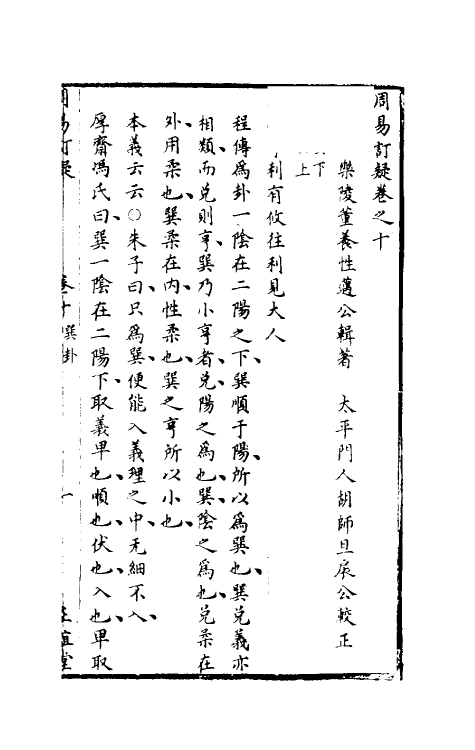 周易訂疑卷之十
樂陵董養性邁公輯著　太平門人胡師旦扆公較正
下
上
利有攸往利見大人
程傳爲卦一陰在二陽之下巽順于陽所以爲巽也巽兌義亦
相類而兌則亨巽乃小亨者兌陽之爲也巽陰之爲也兌柔在
外用柔也巽柔在内性柔也巽之亨所以小也
本義云云○朱子曰只爲巽便能入義理之中无細不入
厚齋馮氏曰巽一陰在二陽下取義卑也順也伏也入也卑取
周易訂疑　卷十巽卦　一　正誼堂